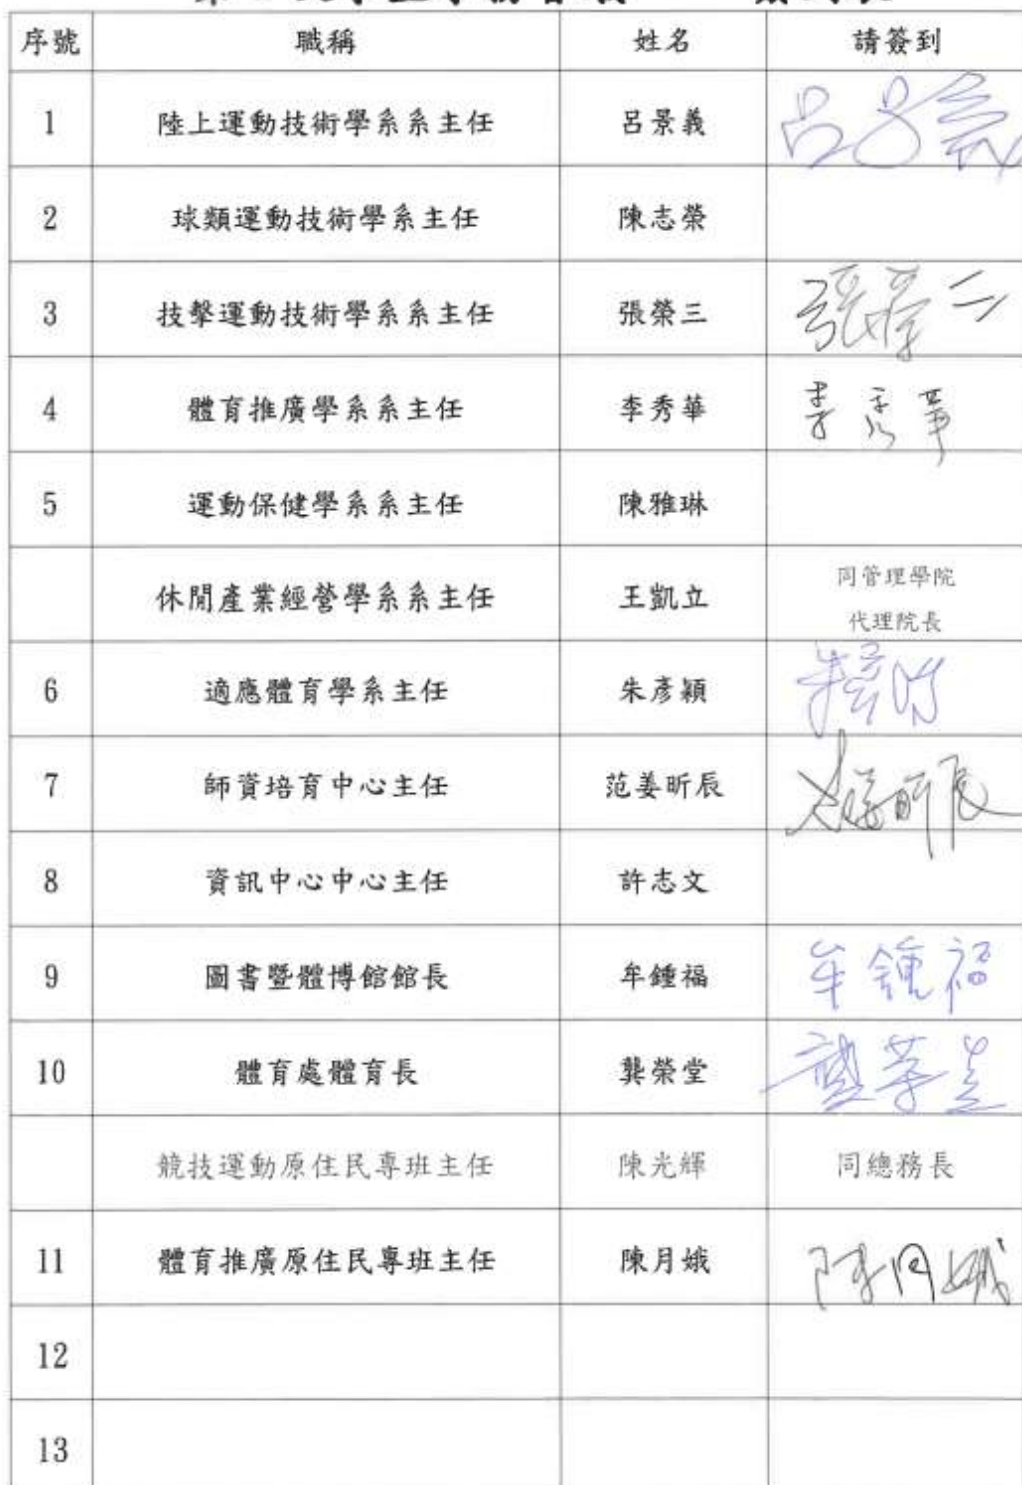 序號 職稱 姓名 請簽到
1 陸上運動技術學系系主任 呂景義 呂景義
2 球類運動技術學系主任 陳志榮
3 技擊運動技術學系系主任 張榮三 張榮三
4 體育推廣學系系主任 李秀華 李秀華
5 運動保健學系系主任 陳雅琳
休閒產業經營學系系主任 王凱立 同管理學院
代理院長
6 適應體育學系主任 朱彥穎 朱彥穎
7 師資培育中心主任 范姜昕辰 范姜昕辰
8 資訊中心中心主任 許志文
9 圖書暨體博館館長 牟鍾福 牟鍾福
10 體育處體育長 龔榮堂 龔榮堂
競技運動原住民專班主任 陳光輝 同總務長
11 體育推廣原住民專班主任 陳月娥 陳月娥
12
13